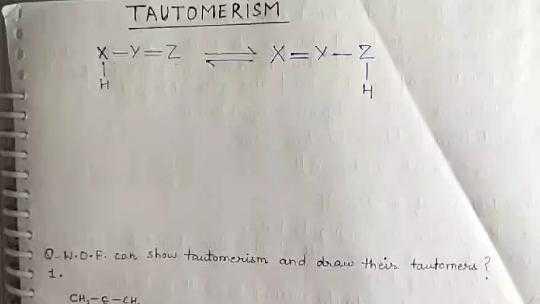 TAUTOMERISM
X-Y=Z ⇌ X=Y-Z
H H
Q. W.O.F. can show tautomerism and draw their tautomers?
1.
CH3-C-CH3